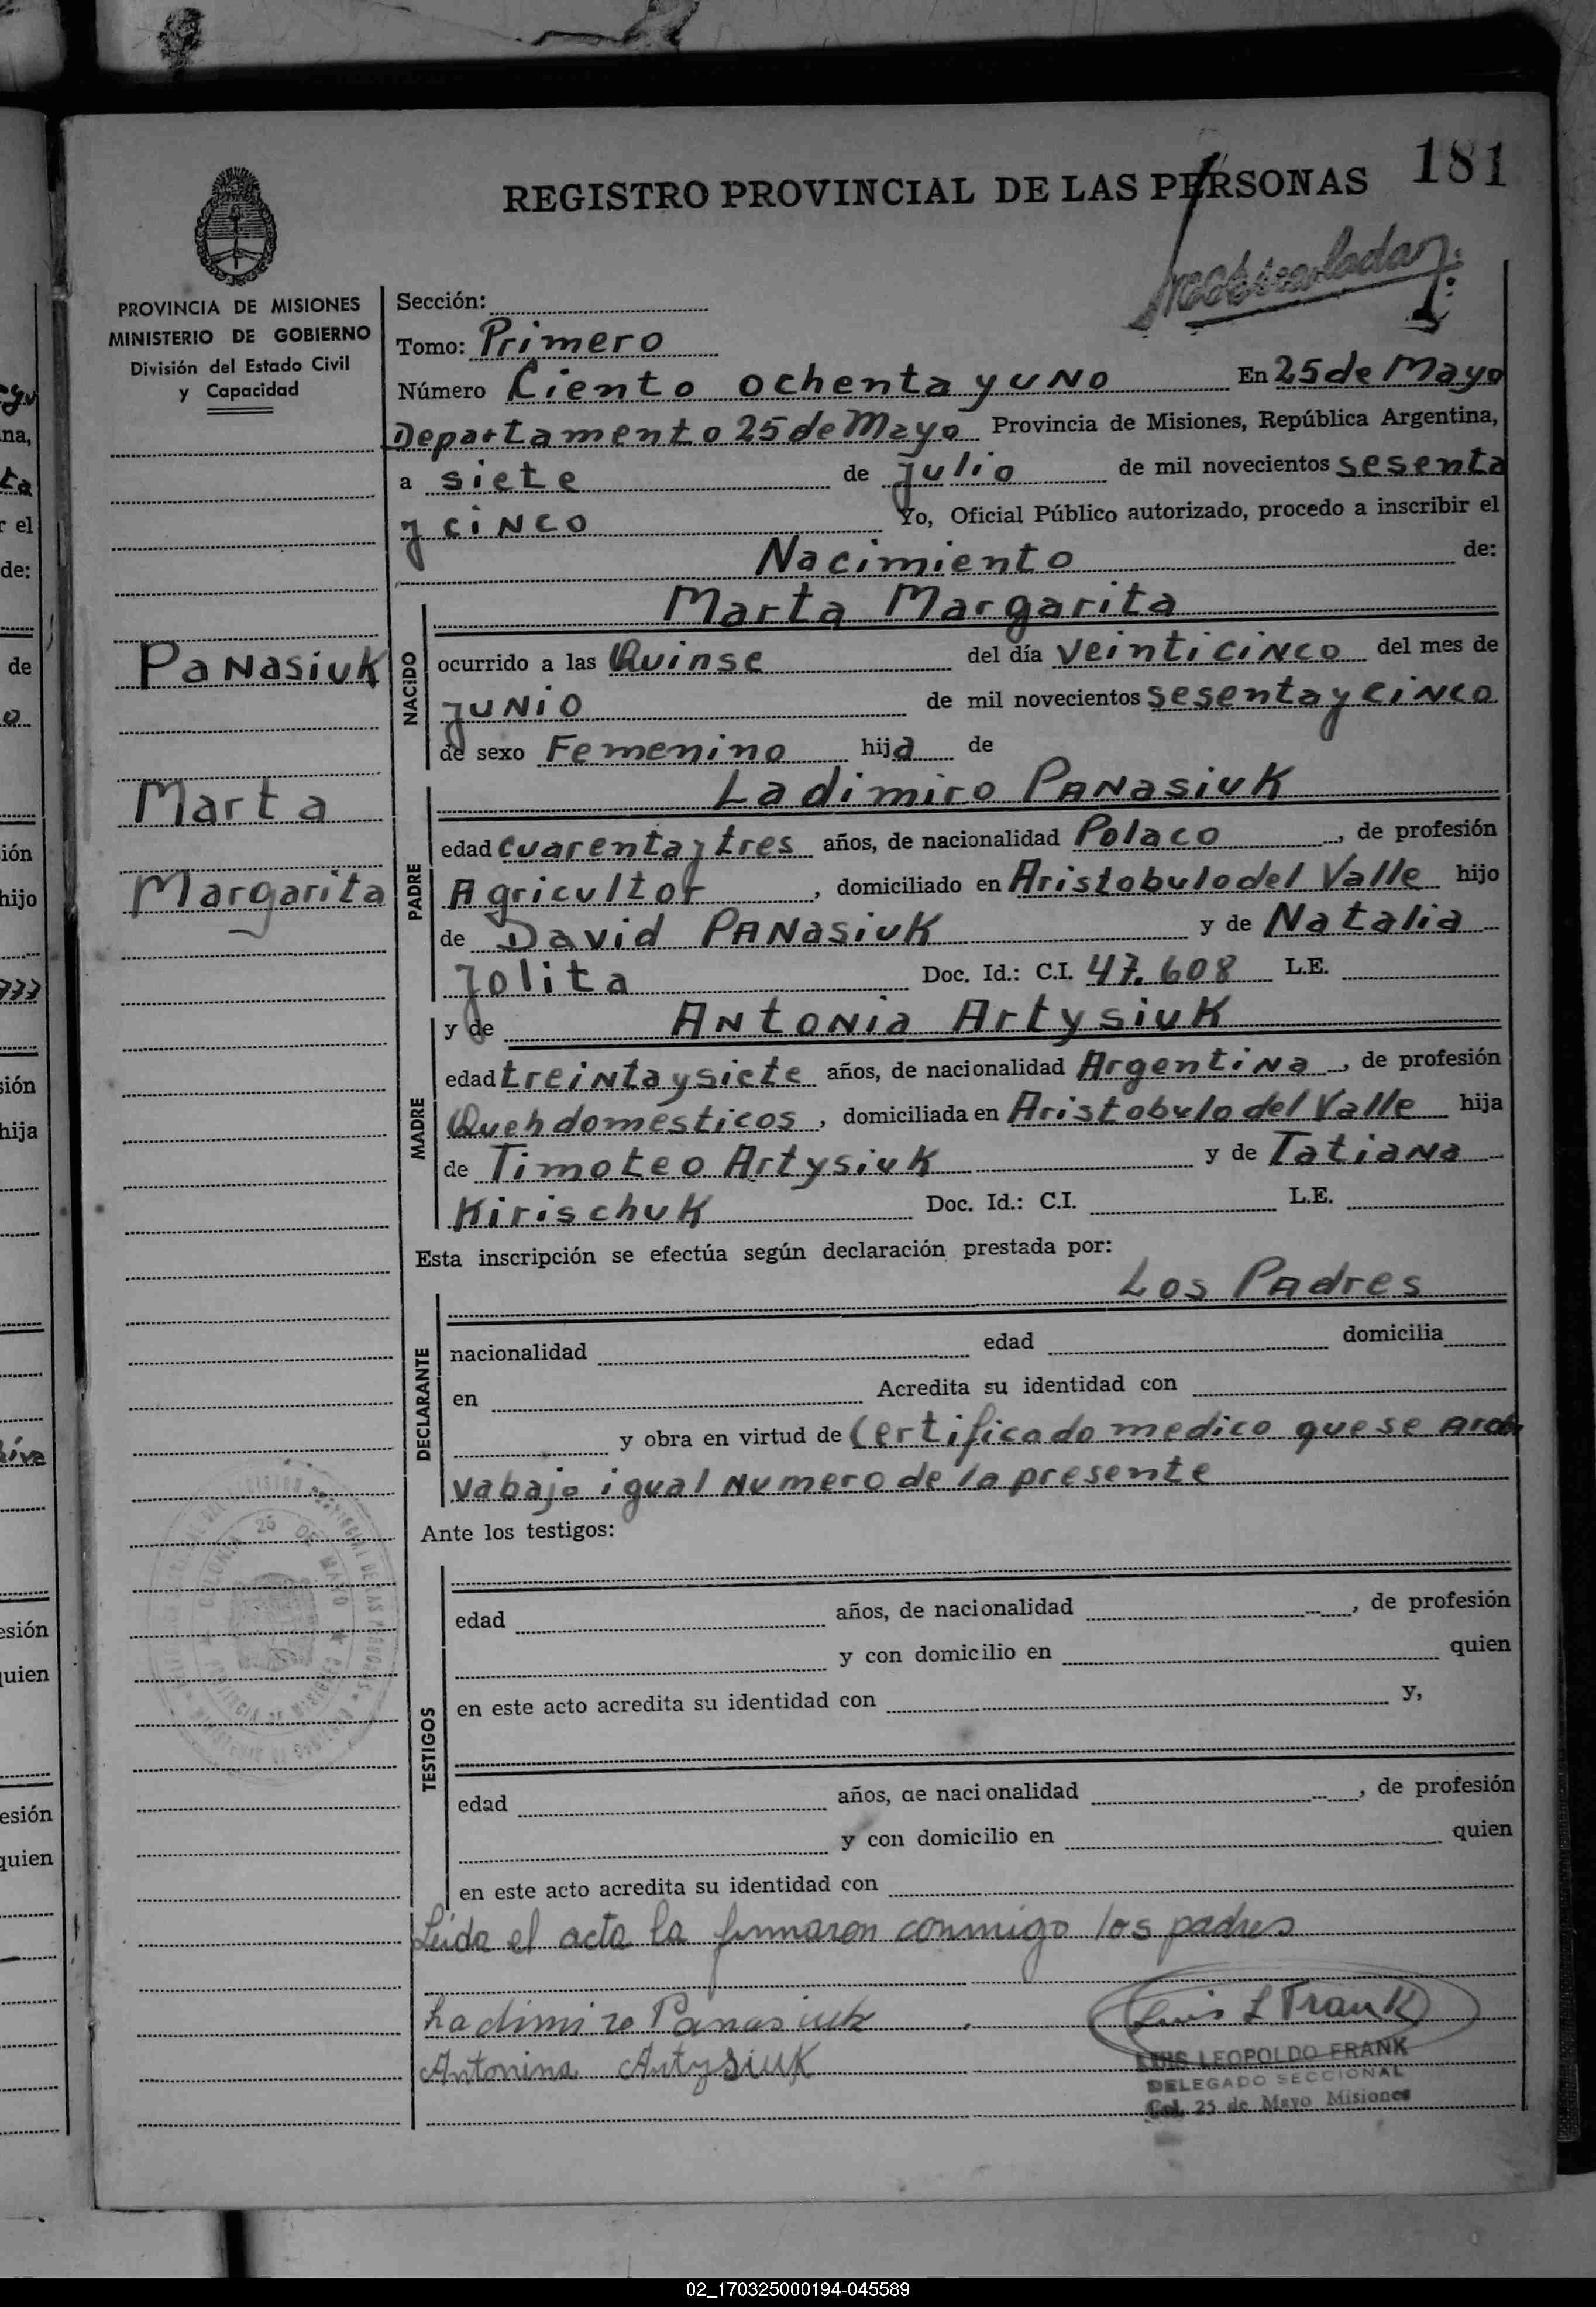 REGISTRO PROVINCIAL DE LAS PERSONAS 181
PROVINCIA DE MISIONES
MINISTERIO DE GOBIERNO
División del Estado Civil
y Capacidad
Sección:
Tomo: Primero
Número Ciento ochenta y uno En 25 de Mayo
Departamento 25 de Mayo Provincia de Misiones, República Argentina,
a siete de julio de mil novecientos sesenta
y cinco Yo, Oficial Público autorizado, procedo a inscribir el
Nacimiento de:
Marta Margarita
Panasiuk
Marta
Margarita
NACIDO
ocurrido a las Quinse del día veinticinco del mes de
junio de mil novecientos sesenta y cinco
de sexo Femenino hija de
Ladimiro Panasiuk
PADRE
edad cuarenta y tres años, de nacionalidad Polaco, de profesión
Agricultor, domiciliado en Aristobulo del Valle hijo
de David Panasiuk y de Natalia
Jolita Doc. Id.: C.I. 47.608 L.E.
y de Antonia Artysiuk
MADRE
edad treinta y siete años, de nacionalidad Argentina, de profesión
Queh domesticos, domiciliada en Aristobulo del Valle hija
de Timoteo Artysiuk y de Tatiana
Kirischuk Doc. Id.: C.I. L.E.
Esta inscripción se efectúa según declaración prestada por:
Los Padres
DECLARANTE
nacionalidad edad domicilia
en Acredita su identidad con
y obra en virtud de Certificado medico que se archi
va bajo igual numero de la presente
Ante los testigos:
TESTIGOS
edad años, de nacionalidad , de profesión
y con domicilio en quien
en este acto acredita su identidad con y,
edad años, de nacionalidad , de profesión
y con domicilio en quien
en este acto acredita su identidad con
Leida el acta la firmaron conmigo los padres
Ladimiro Panasiuk
Antonina Artysiuk
Luis L Frank
LUIS LEOPOLDO FRANK
DELEGADO SECCIONAL
Col. 25 de Mayo Misiones
02_170325000194-045589